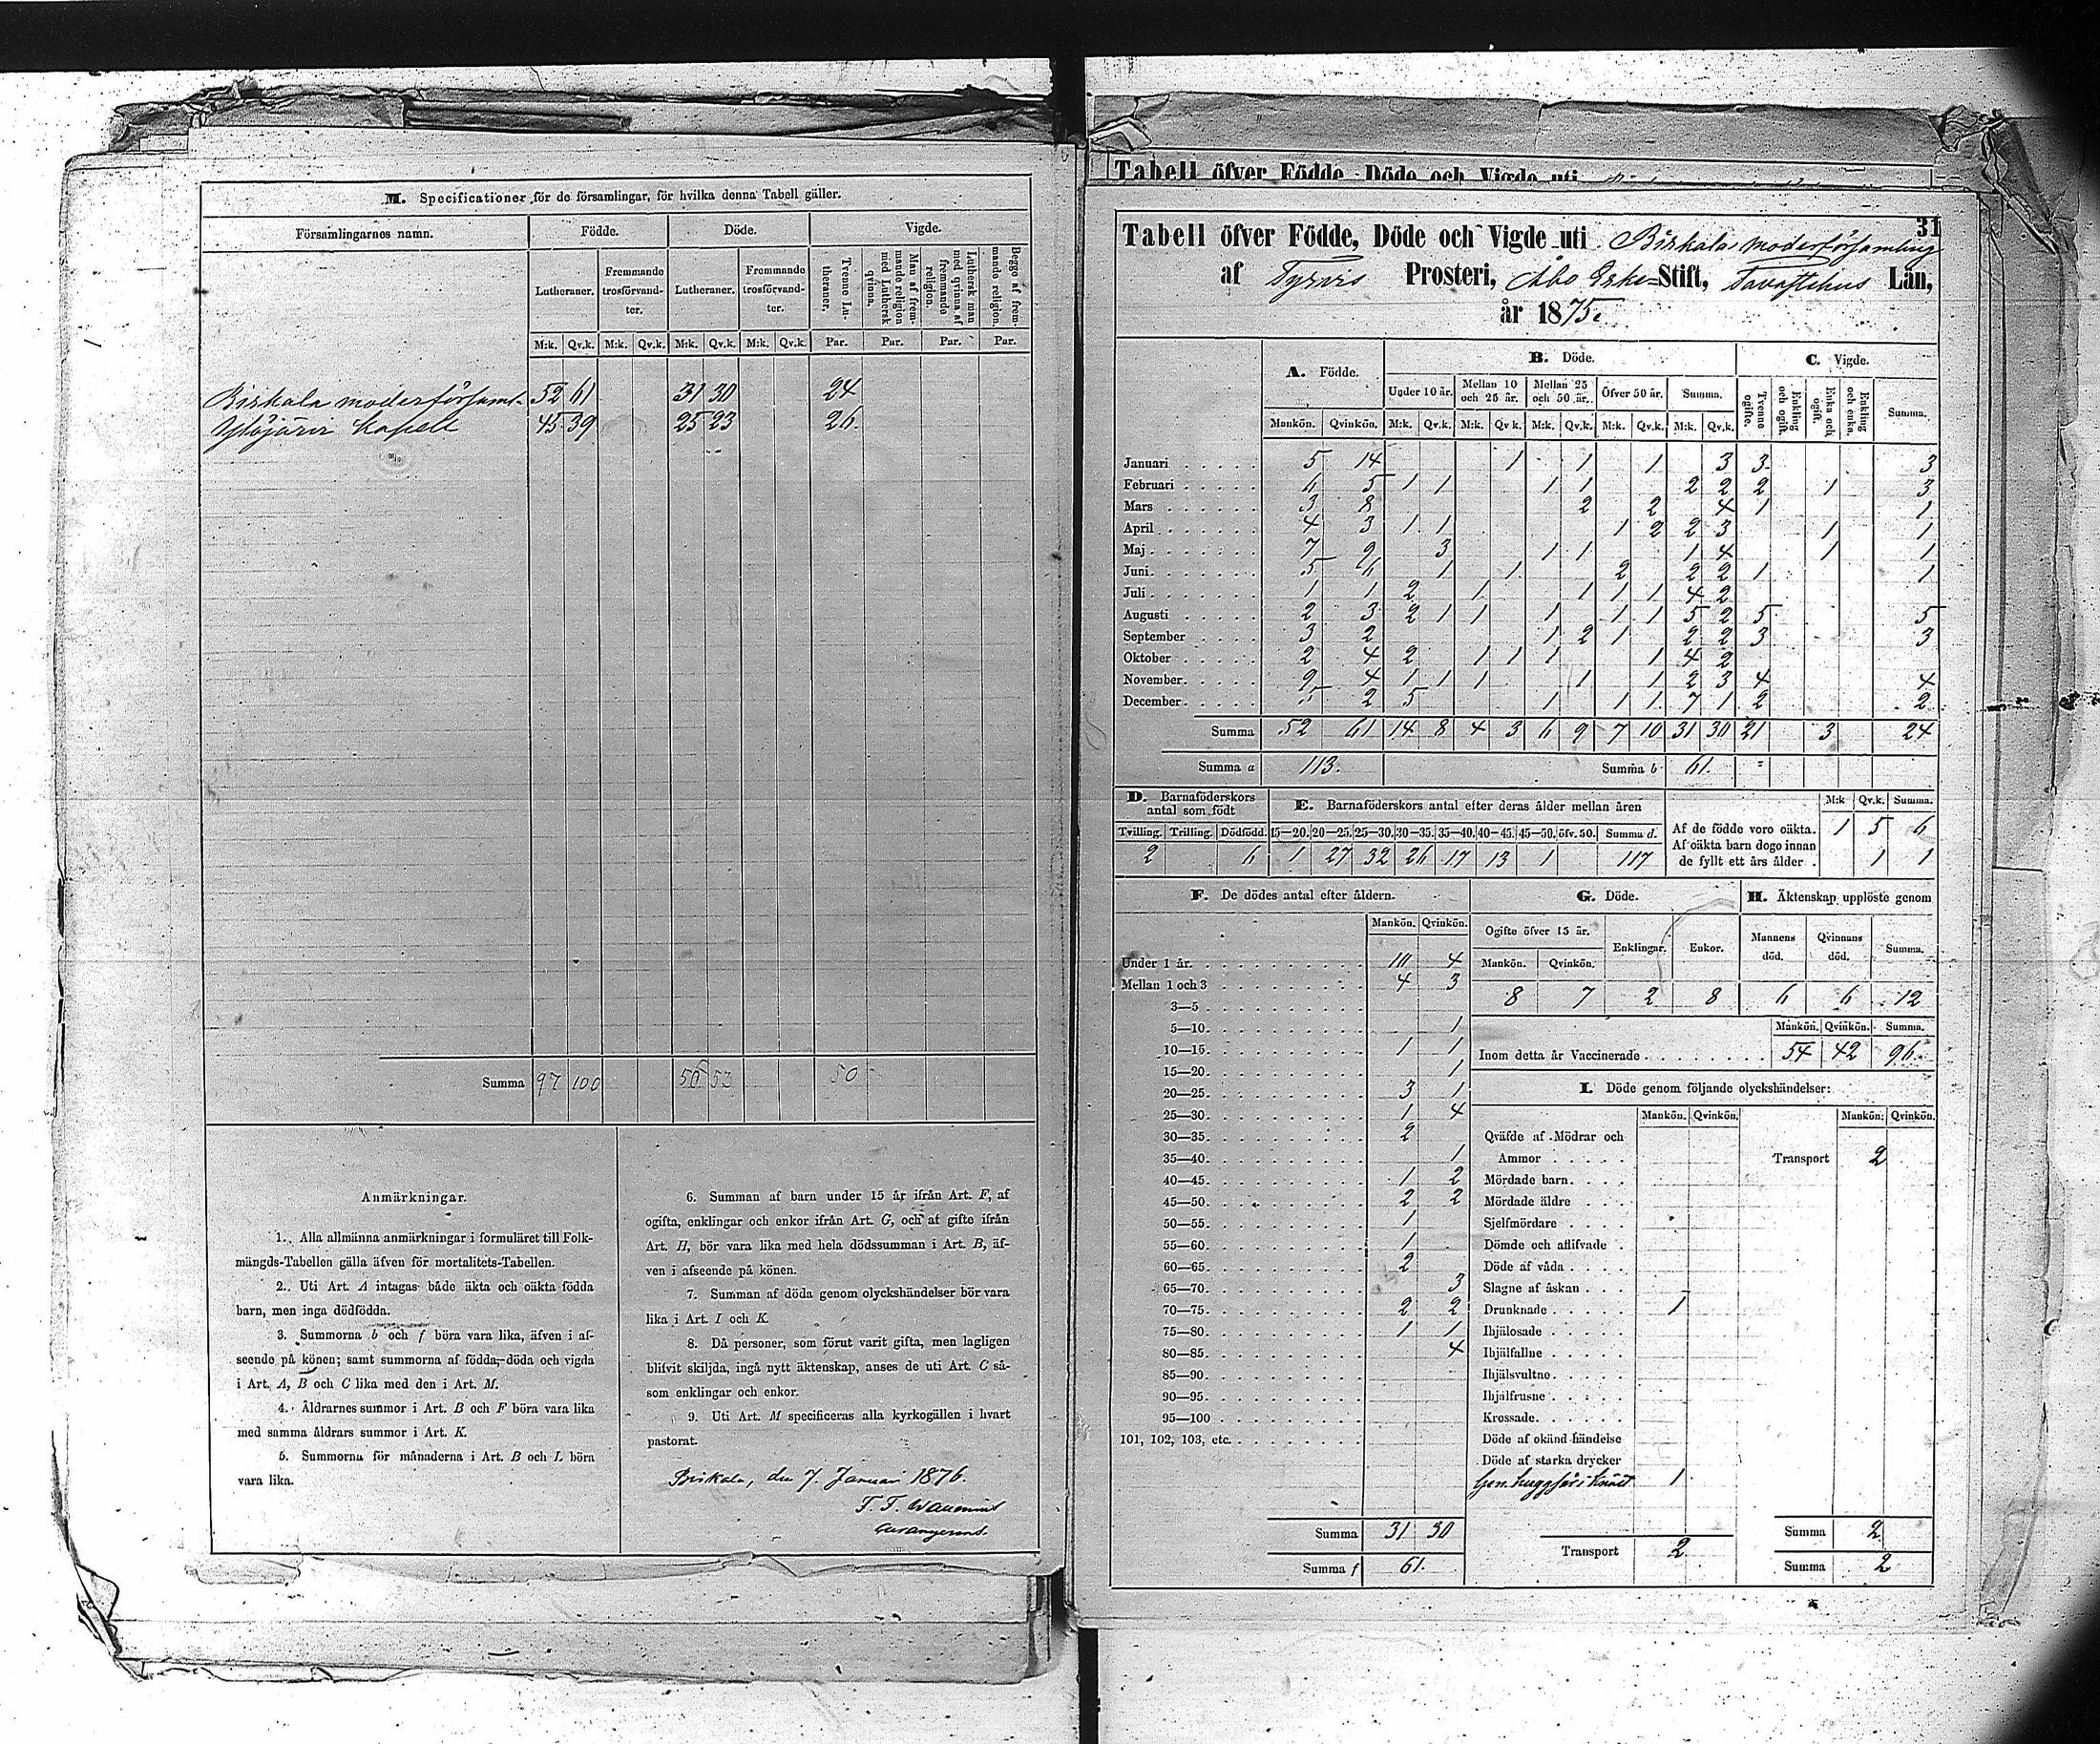 M. Specificationer för de församlingar, för hvilka denna Tabell gäller.
Församlingarnes namn. Födde. Döde. Vigde.
Lutheraner. Fremmande trosförvandter. Lutheraner. Fremmande trosförvandter. Tvenne Lutheraner. Man af fremmande religion med Luthersk qvinna. Luthersk man med qvinna af fremmande religion. Begge af fremmande religion.
M:k. Qv.k. M:k. Qv.k. M:k. Qv.k. M:k. Qv.k. Par. Par. Par. Par.
Birkala moderförsaml. 52 61 31 30 24
Ylöjärvi Kapell 45 39 25 23 26.
Summa 97 100 56 53 50
Anmärkningar.
1. Alla allmänna anmärkningar i formuläret till Folk-
mängds-Tabellen gälla äfven för mortalitets-Tabellen.
2. Uti Art. A intagas både äkta och oäkta födda
barn, men inga dödfödda.
3. Summorna b och f böra vara lika, äfven i af-
seende på könen; samt summorna af födda, döda och vigda
i Art. A, B och C lika med den i Art. M.
4. Åldrarnes summor i Art. B och F böra vara lika
med samma åldrars summor i Art. K.
5. Summorna för månaderna i Art. B och L böra
vara lika.
6. Summan af barn under 15 år ifrån Art. F, af
ogifta, enklingar och enkor ifrån Art. G, och af gifte ifrån
Art. H, bör vara lika med hela dödssumman i Art. B, äf-
ven i afseende på könen.
7. Summan af döda genom olyckshändelser bör vara
lika i Art. I och K.
8. Då personer, som förut varit gifta, men lagligen
blifvit skiljda, ingå nytt äktenskap, anses de uti Art. C så-
som enklingar och enkor.
9. Uti Art. M specificeras alla kyrkogällen i hvart
pastorat.
Birkala, den 7. Januari 1876.
Tabell öfver Födde, Döde och Vigde uti
31
Tabell öfver Födde, Döde och Vigde uti Birkala moderförsamling
af Tyrvis Prosteri, Åbo Erke-Stift, Tavastehus Län,
år 1875.
A. Födde. B. Döde. C. Vigde.
Under 10 år. Mellan 10 och 25 år. Mellan 25 och 50 år. Öfver 50 år. Summa. Tvenne ogifte. Enkling och ogift. Enka och ogift. Enkling och enka. Summa.
Mankön. Qvinkön. M:k. Qv.k. M:k. Qv.k. M:k. Qv.k. M:k. Qv.k. M:k. Qv.k.
Januari 5 14 1 1 1 3 3 3
Februari 6 5 1 1 1 1 2 2 2 1 3
Mars 3 8 2 2 4 1 1
April 4 3 1 1 1 2 2 3 1 1
Maj 7 9 3 1 1 1 4 1 1
Juni 5 6 1 1 2 2 2 1 1
Juli 1 1 2 1 1 1 1 4 2
Augusti 2 3 2 1 1 1 1 1 5 2 5 5
September 3 2 1 2 1 2 2 3 3
Oktober 2 4 2 1 1 1 1 4 2
November 9 4 1 1 1 1 1 2 3 4 4
December 5 2 5 1 1 1 7 1 2 2
Summa 52 61 14 8 4 3 6 9 7 10 31 30 21 3 24
Summa a 113. Summa b 61.
D. Barnaföderskors antal som födt E. Barnaföderskors antal efter deras ålder mellan åren M:k Qv.k. Summa.
Tvilling. Trilling. Dödfödd. 15—20. 20—25. 25—30. 30—35. 35—40. 40—45. 45—50. öfv. 50. Summa d.
2 6 1 27 32 26 17 13 1 117
Af de födde voro oäkta. 1 5 6
Af oäkta barn dogo innan
de fyllt ett års ålder 1 1
F. De dödes antal efter åldern.
Mankön. Qvinkön.
Under 1 år. 10 4
Mellan 1 och 3 4 3
3—5
5—10 1
10—15 1 1
15—20 1
20—25 3 1
25—30 1 4
30—35 2
35—40 1
40—45 1 2
45—50 2 2
50—55 1
55—60 1
60—65 2
65—70 3
70—75 2 2
75—80 1 1
80—85 4
85—90
90—95
95—100
101, 102, 103, etc.
Summa 31 30
Summa f 61.
G. Döde. H. Äktenskap upplöste genom
Ogifte öfver 15 år. Enklingar. Enkor. Mannens död. Qvinnans död. Summa.
Mankön. Qvinkön.
8 7 2 8 6 6 12
Mankön. Qvinkön. Summa.
Inom detta år Vaccinerade 54 42 96.
I. Döde genom följande olyckshändelser:
Mankön. Qvinkön. Mankön. Qvinkön.
Qväfde af Mödrar och
Ammor Transport 2
Mördade barn
Mördade äldre
Sjelfmördare
Dömde och aflifvade
Döde af våda
Slagne af åskan
Drunknade 1
Ihjälosade
Ihjälfallne
Ihjälsvultne
Ihjälfrusne
Krossade
Döde af okänd händelse
Döde af starka drycker
Gen. huggsår i knäet 1
Transport 2 Summa 2
Summa 2